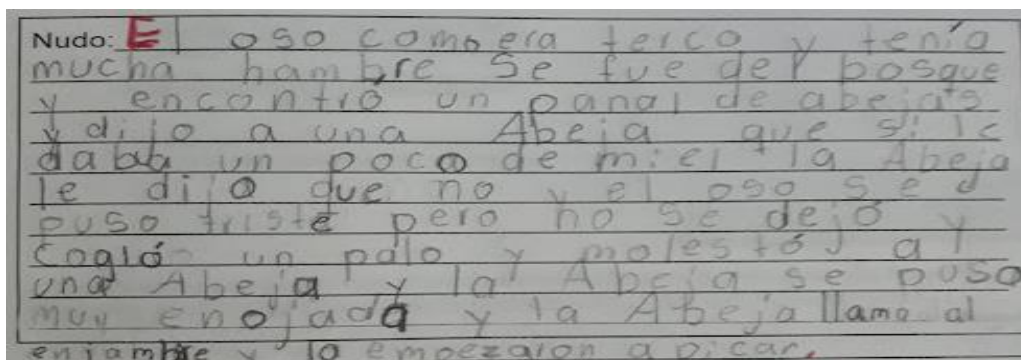 Nudo: El oso como era terco y tenía
mucha hambre se fue del bosque
y encontró un panal de abejas
y dijo a una Abeja que si le
daba un poco de miel la Abeja
le dijo que no y el oso se
puso triste pero no se dejó y
cogió un palo y molestó a
una Abeja y la Abeja se puso
muy enojada y la Abeja llamo al
enjambre y lo empezaron a picar.